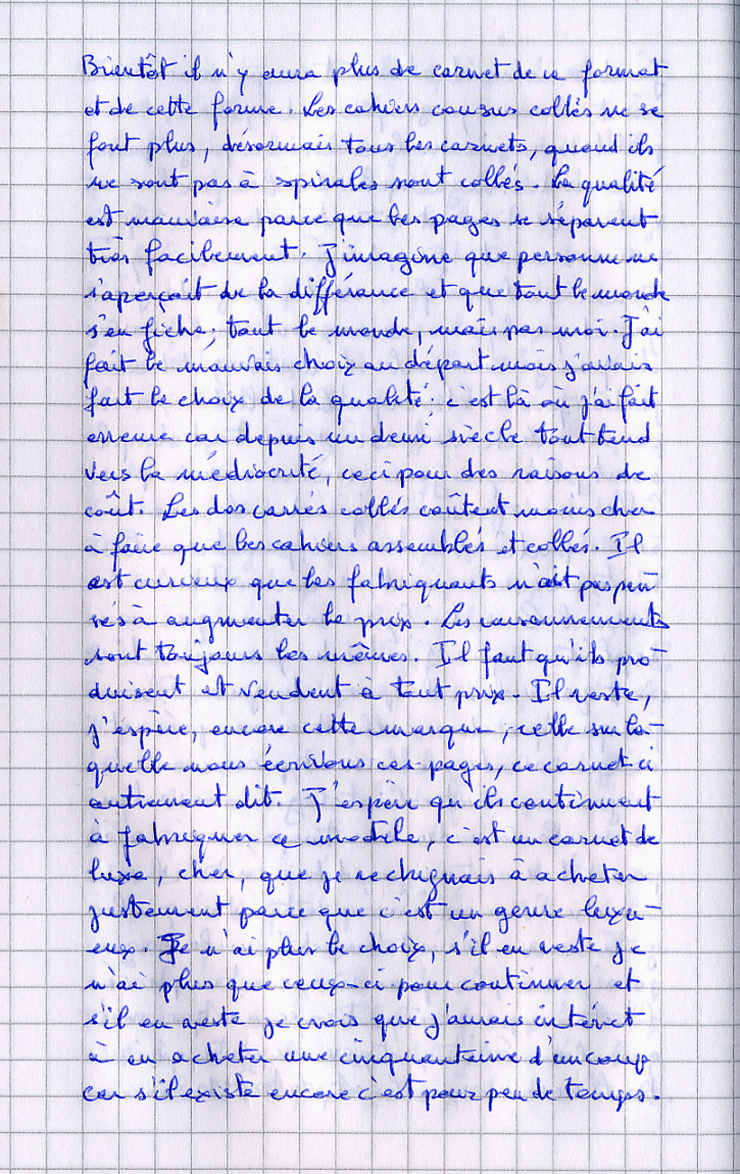 Bientôt il n'y aura plus de carnet de ce format
et de cette forme. Les cahiers cousus collés ne se
font plus, désormais tous les carnets, quand ils
ne sont pas à spirales sont collés. La qualité
est mauvaise parce que les pages se séparent
très facilement. J'imagine que personne ne
s'aperçoit de la différance et que tout le monde
s'en fiche; tout le monde, mais pas moi. J'ai
fait le mauvais choix au départ mais j'avais
fait le choix de la qualité; c'est là où j'ai fait
erreur car depuis un demi siècle tout tend
vers la médiocrité, ceci pour des raisons de
coût. Les dos carrés collés coûtent moins cher
à faire que les cahiers assemblés et collés. Il
est curieux que les fabriquants n'ait pas pen
sés à augmenter le prix. Les raisonnements
sont toujours les mêmes. Il faut qu'ils pro-
duisent et vendent à tout prix. Il reste,
j'espère, encore cette marque, celle sur la-
quelle nous écrivons ces pages, ce carnet-ci
autrement dit. J'espère qu'ils continuent
à fabriquer ce modèle, c'est un carnet de
luxe, cher, que je rechignais à acheter
justement parce que c'est un genre luxu-
eux. Je n'ai plus le choix, s'il en reste je
n'ai plus que ceux-ci pour continuer et
s'il en reste je crois que j'aurais intéret
à en acheter une cinquantaine d'un coup
car s'il existe encore c'est pour peu de temps.